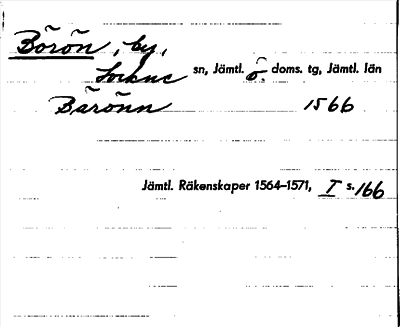 Börön, by,
Lockne sn, Jämtl. ö. doms. tg, Jämtl. län
Bärönn 1566
Jämtl. Räkenskaper 1564–1571, I s. 166